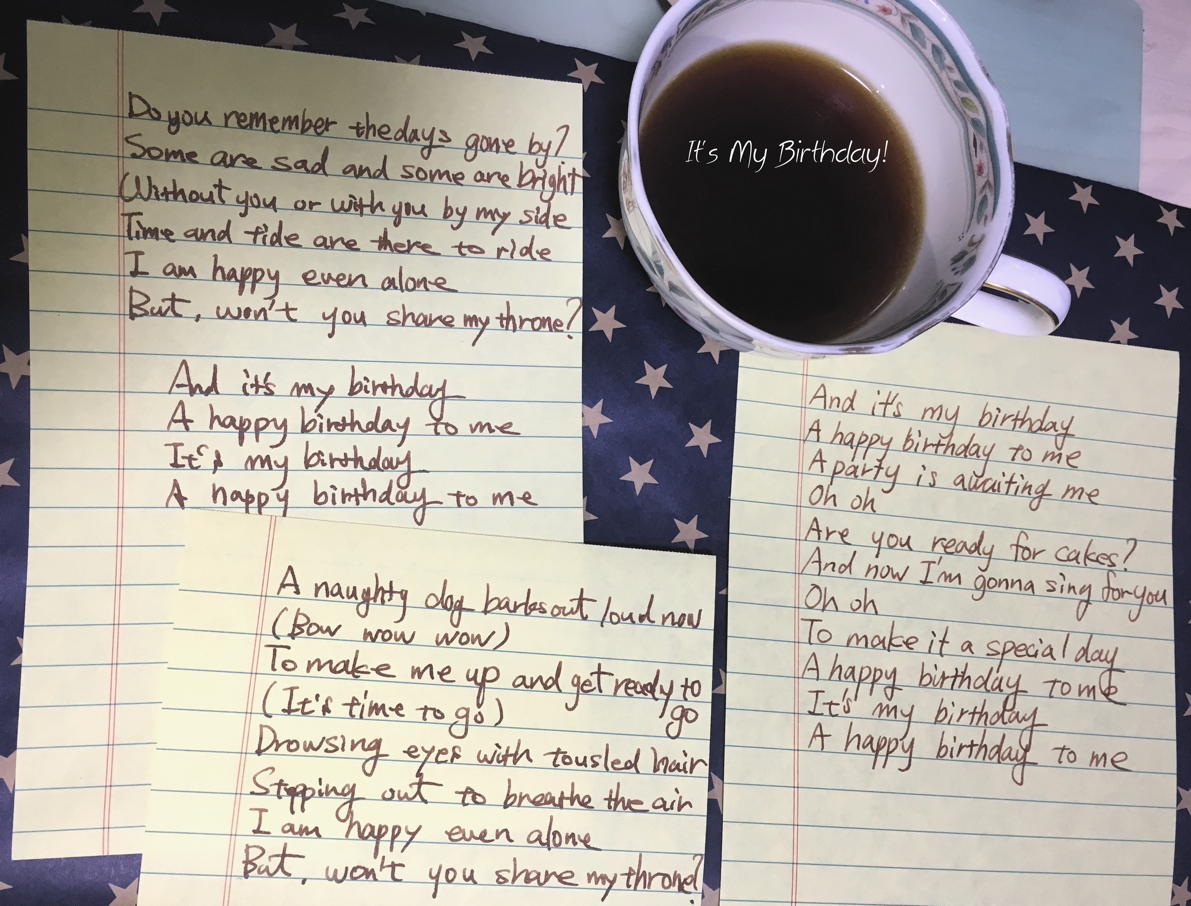 It's My Birthday!
Do you remember the days gone by?
Some are sad and some are bright
Without you or with you by my side
Time and tide are there to ride
I am happy even alone
But, won't you share my throne?
And it's my birthday
A happy birthday to me
It's my birthday
A happy birthday to me
A naughty dog barks out loud now
(Bow wow wow)
To make me up and get ready to
go
(It's time to go)
Drowsing eyes with tousled hair
Stepping out to breathe the air
I am happy even alone
But, won't you share my throne?
And it's my birthday
A happy birthday to me
A party is awaiting me
Oh oh
Are you ready for cakes?
And now I'm gonna sing for you
Oh oh
To make it a special day
A happy birthday to me
It's my birthday
A happy birthday to me